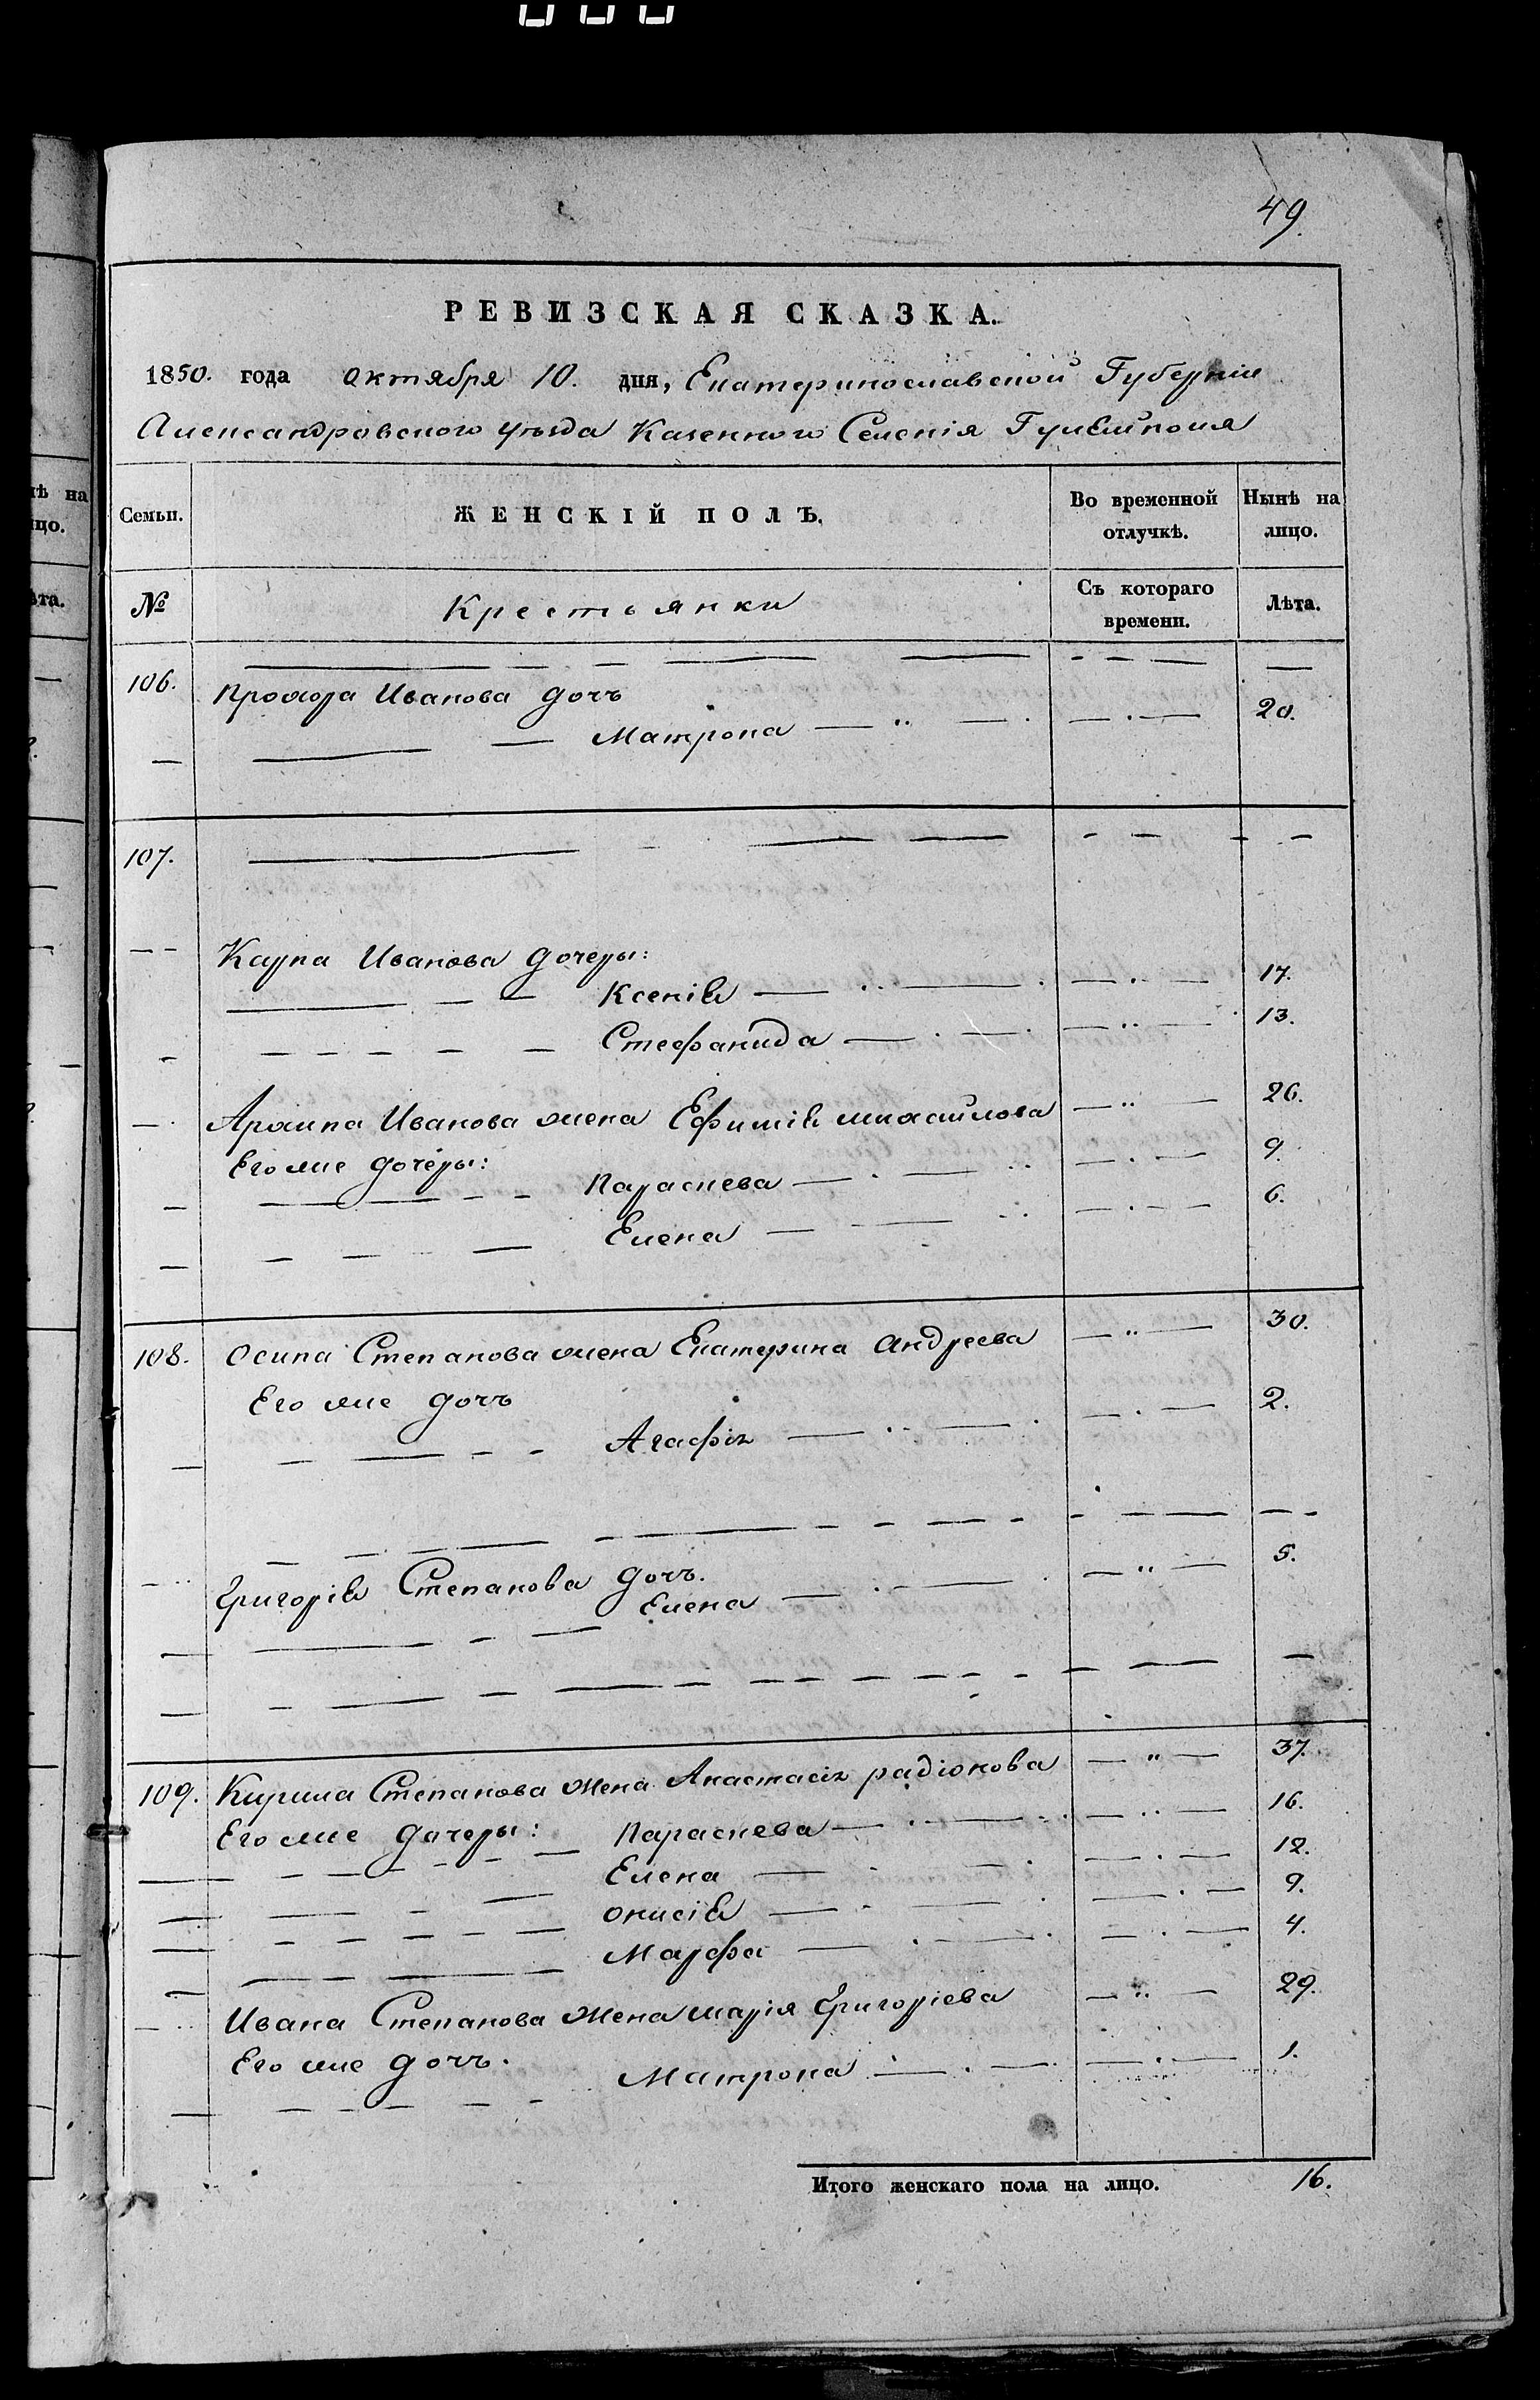 49.
РЕВИЗСКАЯ СКАЗКА.
1850. года октября 10. дня, Екатеринославской Губерніи
Александровского уѣзда Казенного Селенія Гуляйполя
нѣ на
Семьи. ЖЕНСКІЙ ПОЛЪ. Во временной Нынѣ на
отлучкѣ. лицо.
№ Крестьянки Съ котораго Лѣта.
времени.
106. Прохора Иванова дочъ
Матрона 20.
107.
Карпа Иванова дочеры:
Ксенія 17.
Стефанида 13.
Архипа Иванова жена Ефимія михайлова 26.
Его же дочеры:
Параскева 9.
Елена 6.
108. Осипа Степанова жена Екатерина андреева 30.
Его же дочъ
Агафія 2.
Григорія Степанова дочъ.
Елена 5.
109. Кирила Степанова жена Анастасія радіонова 37.
Его же дочеры: Параскева 16.
Елена 12.
онисія 9.
Марфа 4.
Ивана Степанова жена марія Григоріева 29.
Его же дочъ.
Матрона 1.
Итого женскаго пола на лицо. 16.